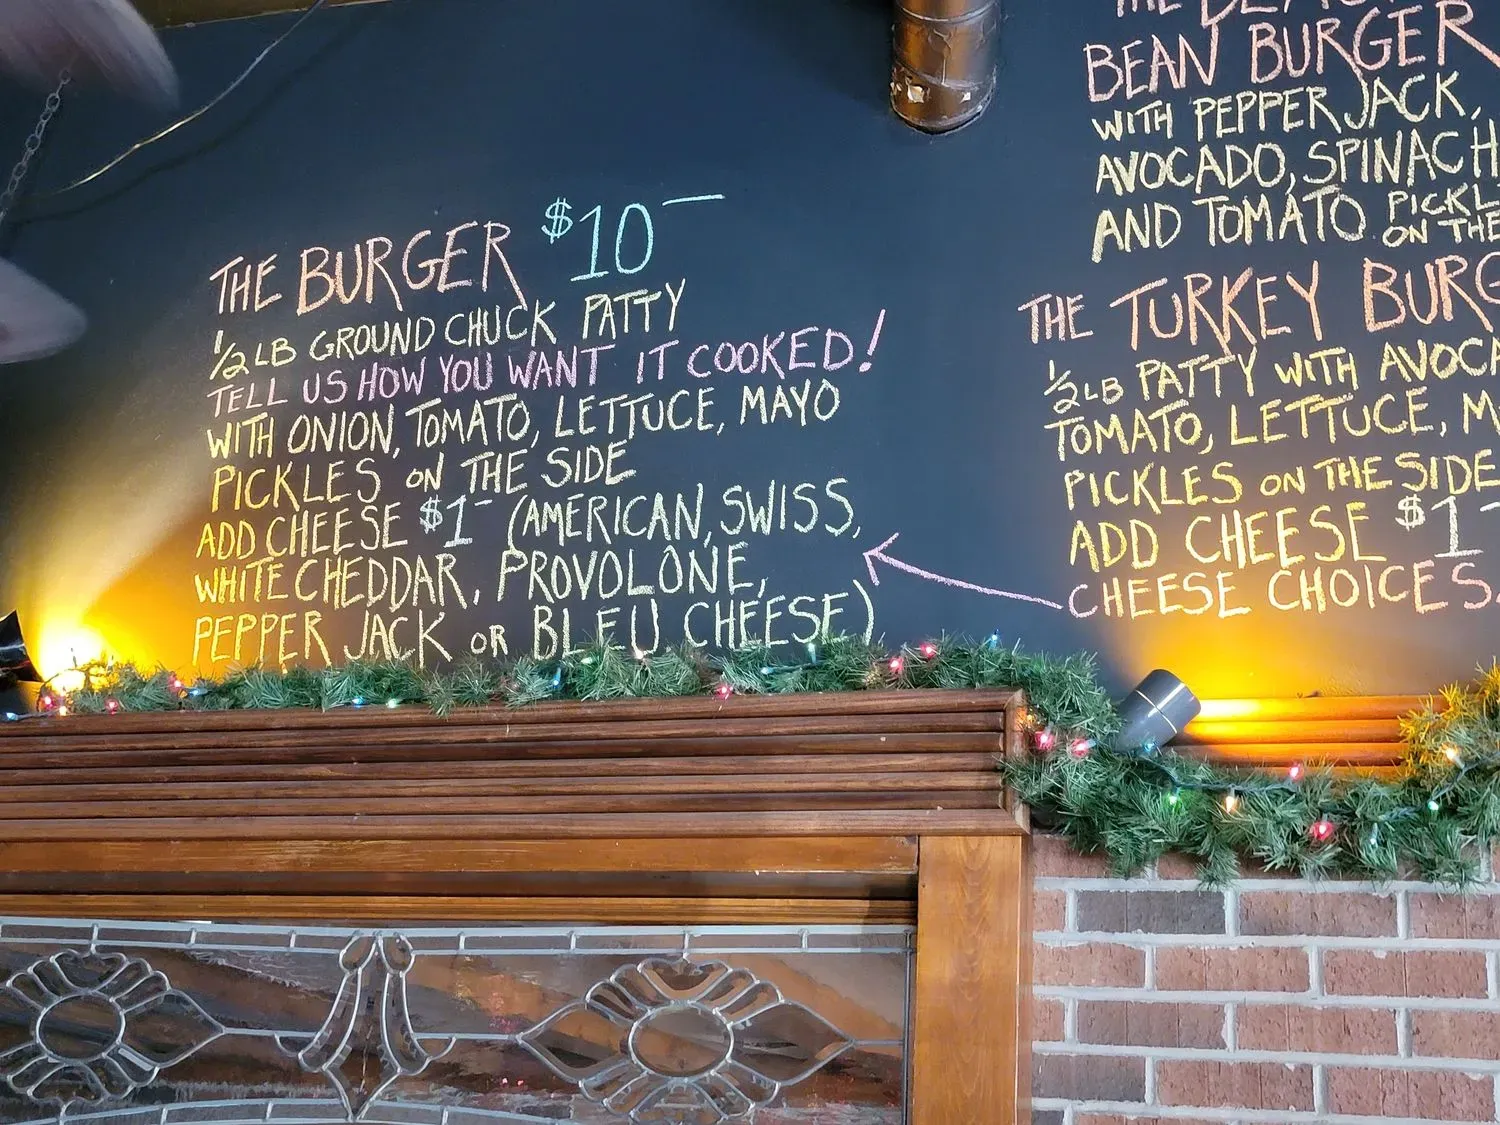 THE BURGER $10—
1/2 LB GROUND CHUCK PATTY
TELL US HOW YOU WANT IT COOKED!
WITH ONION, TOMATO, LETTUCE, MAYO
PICKLES ON THE SIDE
ADD CHEESE $1- (AMERICAN, SWISS,
WHITE CHEDDAR, PROVOLONE,
PEPPER JACK OR BLEU CHEESE)
THE
BEAN BURGER
WITH PEPPER JACK,
AVOCADO, SPINACH
AND TOMATO
ON THE
THE TURKEY
1/2 LB PATTY WITH
TOMATO, LETTUCE,
PICKLES ON THE SIDE
ADD CHEESE $1-
CHEESE CHOICES